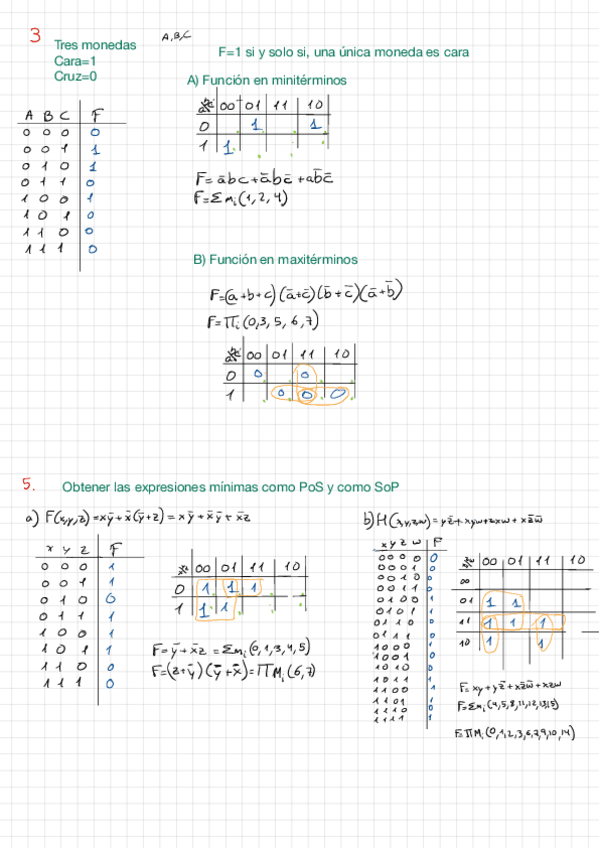 3
Tres monedas
Cara=1
Cruz=0
A,B,C
F=1 si y solo si, una única moneda es cara
A) Función en minitérminos
A B C F
0 0 0 0
0 0 1 1
0 1 0 1
0 1 1 0
1 0 0 1
1 0 1 0
1 1 0 0
1 1 1 0
00 01 11 10
0 1 1
1 1
F= a̅b̅c + a̅bc̅ + ab̅c̅
F=Σmi(1,2,4)
B) Función en maxitérminos
F=(a+b+c)(a̅+c̅)(b̅+c̅)(a̅+b̅)
F=∏i(0,3,5,6,7)
00 01 11 10
0 0 0
1 0 0 0
5. Obtener las expresiones mínimas como PoS y como SoP
a) F(x,y,z)=xy̅+x̅(y̅+z)=xy̅+x̅y̅+x̅z
x y z F
0 0 0 1
0 0 1 1
0 1 0 0
0 1 1 1
1 0 0 1
1 0 1 1
1 1 0 0
1 1 1 0
00 01 11 10
0 1 1 1
1 1 1
F=y̅+x̅z=Σmi(0,1,3,4,5)
F=(z+y̅)(y̅+x̅)=∏Mi(6,7)
x y z w F
0 0 0 0 0
0 0 0 1 0
0 0 1 0 0
00 01 11 10
00
01 1 1
11 1 1 1
10 1 1
F=xy+yz̅+xz̅w̅+xzw
F=Σmi(4,5,8,11,12,13,15)
F=∏Mi(0,1,2,3,6,7,9,10,14)